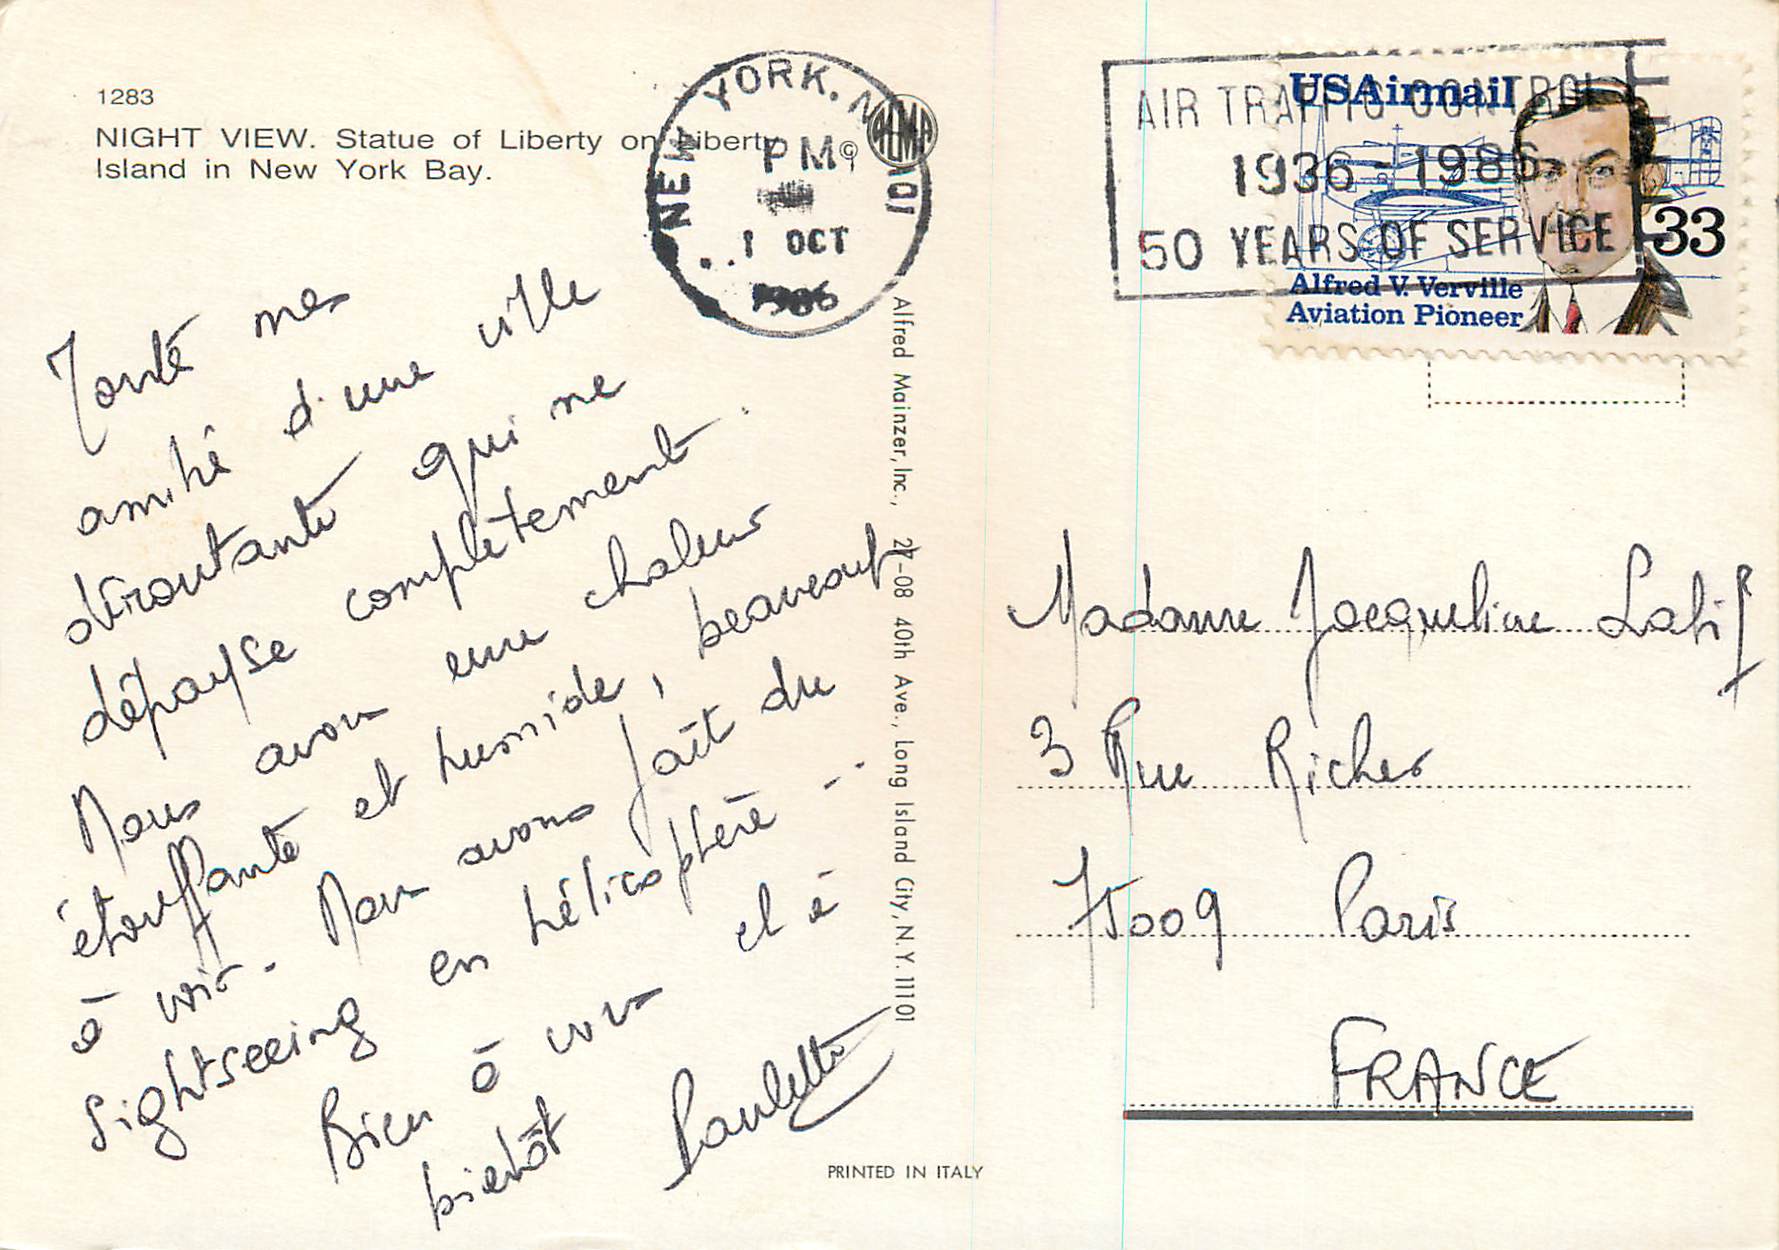 1283
NIGHT VIEW. Statue of Liberty on Liberty
Island in New York Bay.
©
NEW YORK, N
PM
1 OCT
1986
AIR TRAFFIC CONTROL
1936 - 1986
50 YEARS OF SERVICE
USAirmail
33
Alfred V. Verville
Aviation Pioneer
Toute mes
amitié d'une ville
déroutante qui me
dépayse complètement.
Nous avons une chaleur
étouffante et humide, beaucoup
à voir. Nous avons fait du
sightseeing en hélicoptère ..
Bien à vous et à
bientôt Paulette
Alfred Mainzer, Inc., 27-08 40th Ave., Long Island City, N.Y. 11101
PRINTED IN ITALY
Madame Jacqueline Latif
3 Rue Richer
75009 Paris
FRANCE